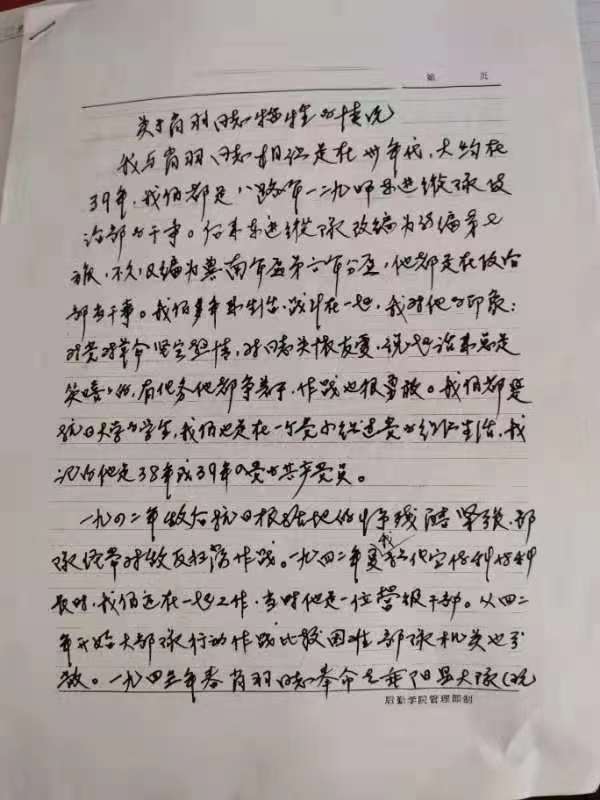 第 页
关于肖羽同志牺牲的情况
我与肖羽同志相认是在卅年代，大约在
39年，我们都是八路军一二九师东进纵队政
治部的干事。后来东进纵队改编为新编第七
旅，不久，又编为冀南军区第六军分区，他都是在政治
部当干事。我们多年来生活、战斗在一起，我对他的印象：
对党对革命坚定热情，对同志关怀友爱，说起话来总是
笑嘻嘻的，有任务他都争着干，作战也很勇敢。我们都是
抗日大学的学生，我们也是在一个党小组过党的组织生活，我
记的他是38年或39年入党的共产党员。
一九四二年敌后抗日根据地的斗争残酷紧张，部
队经常对敌反扫荡作战。一九四二年夏我
长时，我们还在一起工作，当时他是一位营级干部。从四二
年开始大部队行动作战比较困难，部队机关也分
散。一九四三年春肖羽同志奉命去 阳县大队（现
后勤学院管理部制